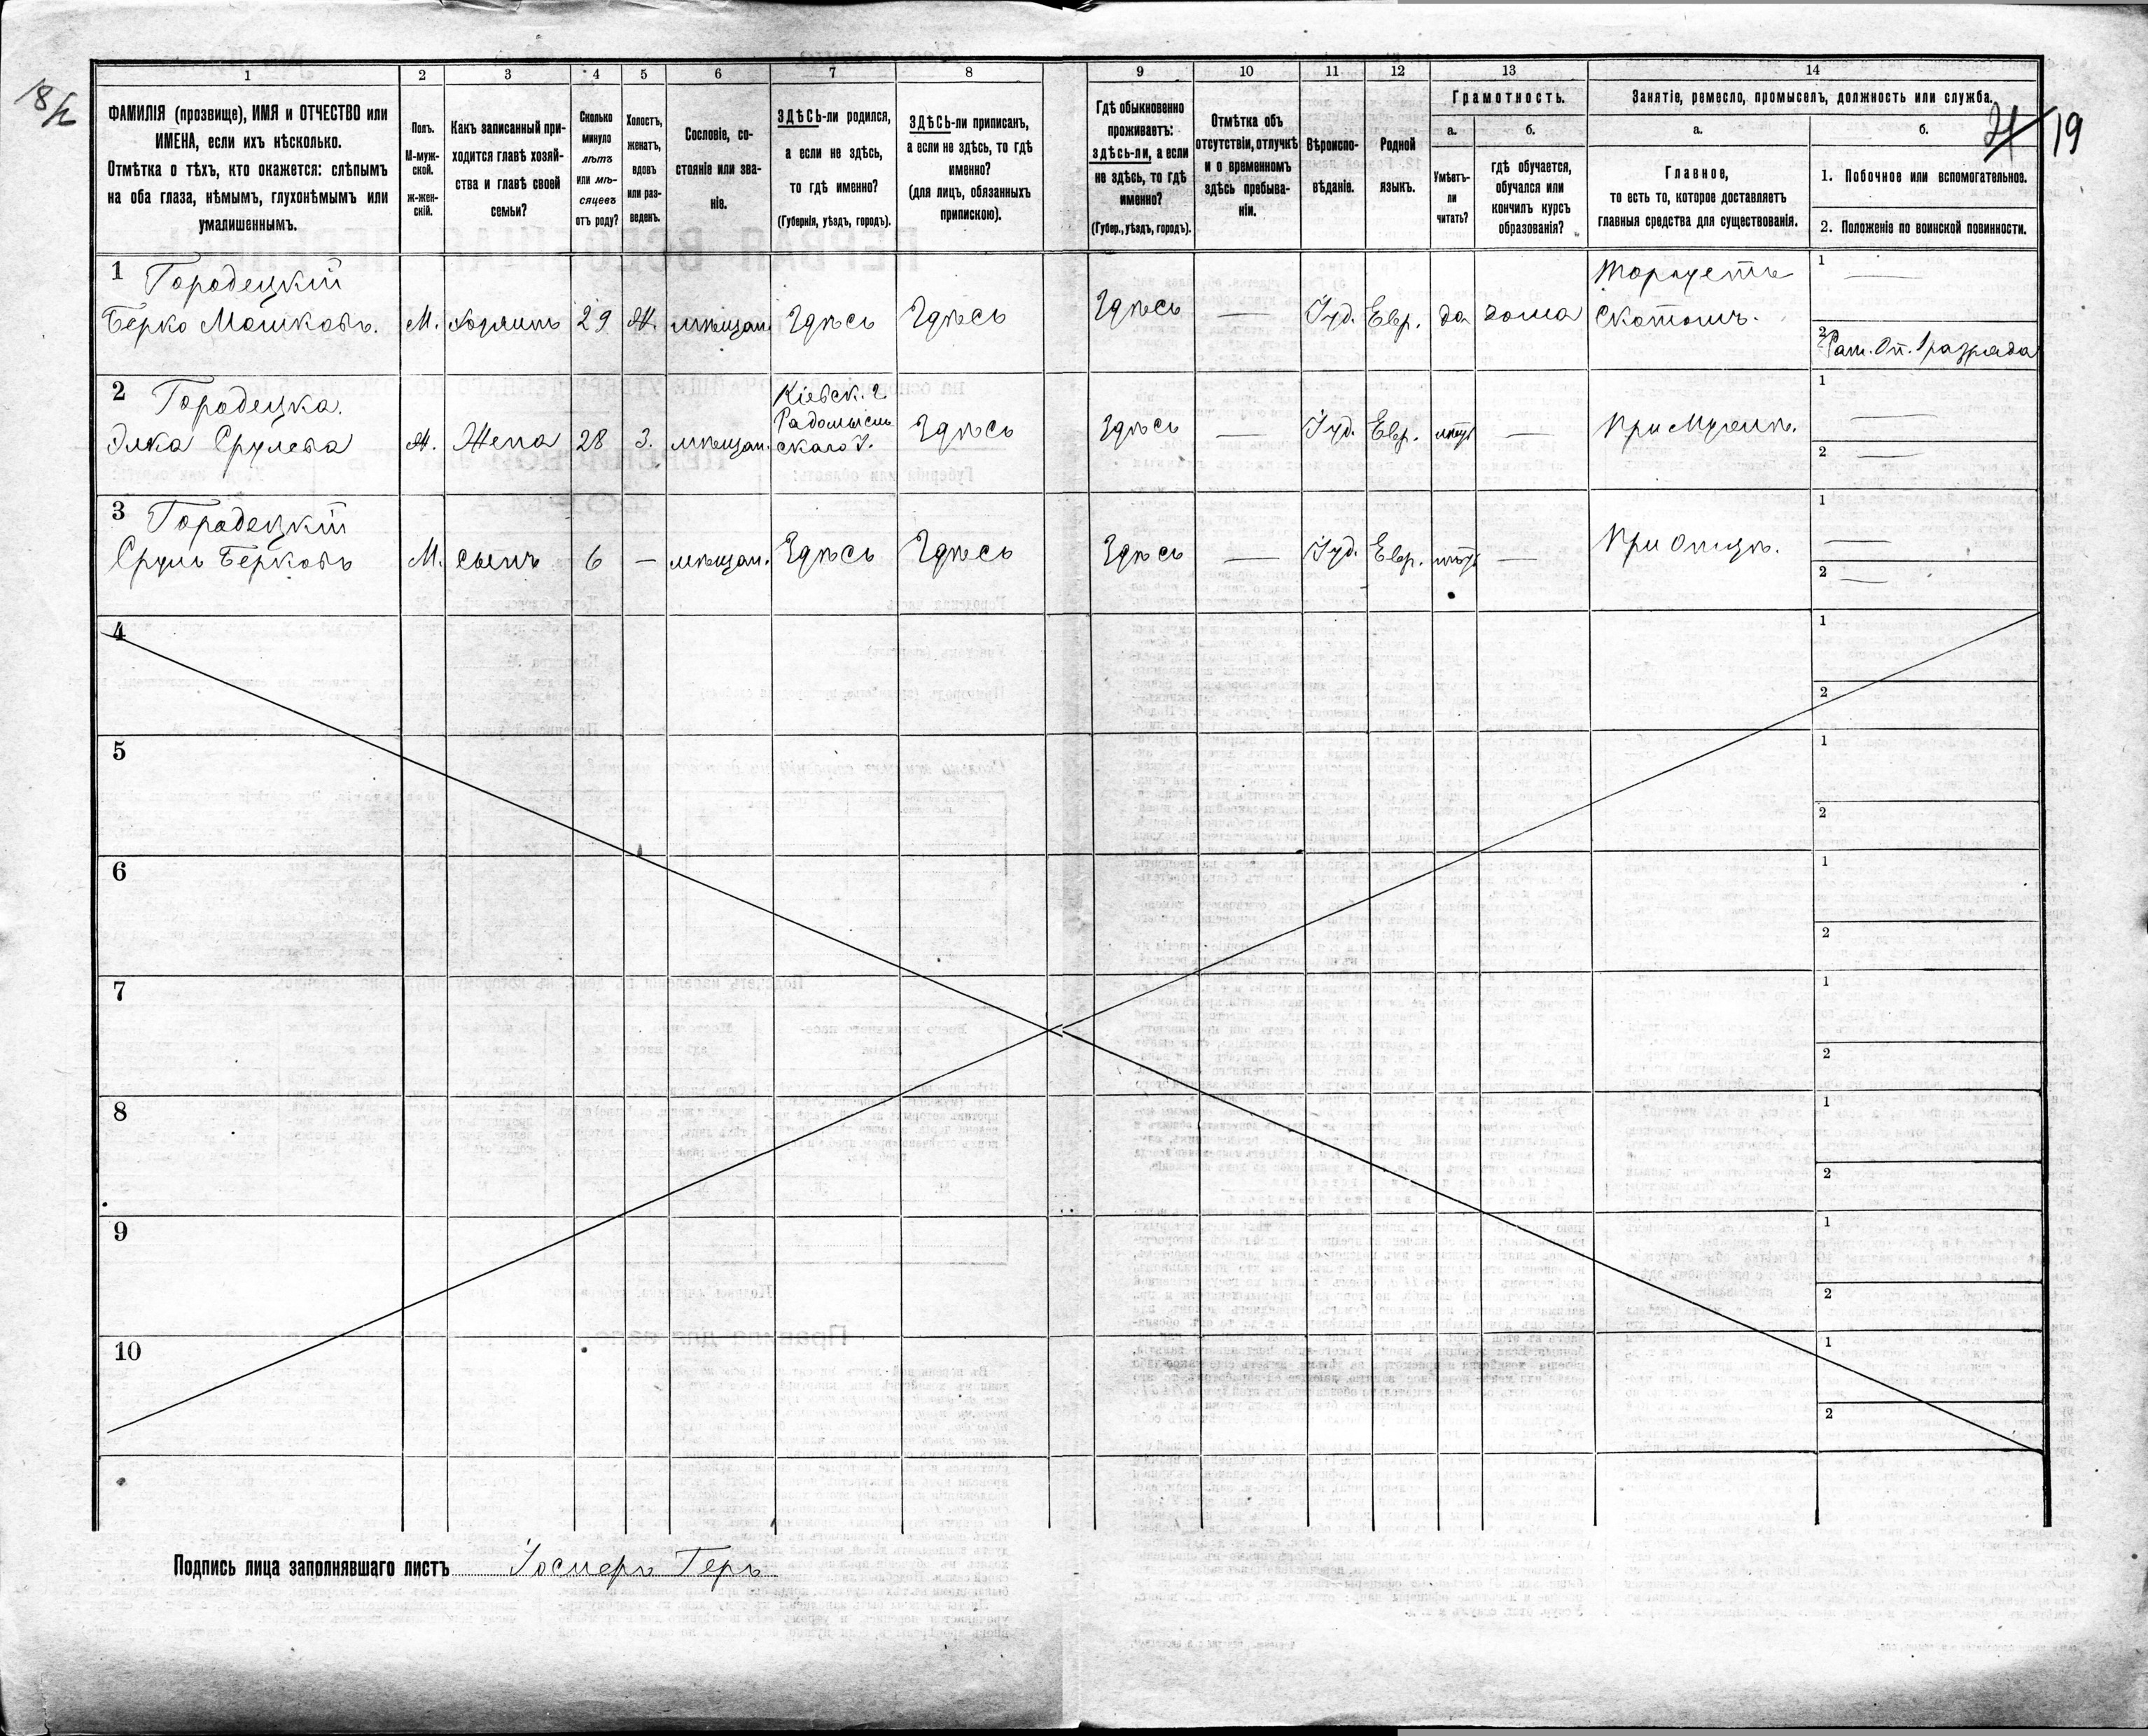 18/2
21 19
1 2 3 4 5 6 7 8 9 10 11 12 13 14
ФАМИЛІЯ (прозвище), ИМЯ и ОТЧЕСТВО или
ИМЕНА, если ихъ нѣсколько.
Отмѣтка о тѣхъ, кто окажется: слѣпымъ
на оба глаза, нѣмымъ, глухонѣмымъ или
умалишеннымъ.
Полъ.
М-муж-
ской.
ж-жен-
скій.
Какъ записанный при-
ходится главѣ хозяй-
ства и главѣ своей
семьи?
Сколько
минуло
лѣтъ
или мѣ-
сяцевъ
отъ роду?
Холостъ,
женатъ,
вдовъ
или раз-
веденъ.
Сословіе, со-
стояніе или зва-
ніе.
ЗДѢСЬ-ли родился,
а если не здѣсь,
то гдѣ именно?
(Губернія, уѣздъ, городъ).
ЗДѢСЬ-ли приписанъ,
а если не здѣсь, то гдѣ
именно?
(для лицъ, обязанныхъ
припискою).
Гдѣ обыкновенно
проживаетъ:
здѣсь-ли, а если
не здѣсь, то гдѣ
именно?
(Губер., уѣздъ, городъ).
Отмѣтка объ
отсутствіи, отлучкѣ
и о временномъ
здѣсь пребыва-
ніи.
Вѣроиспо-
вѣданіе.
Родной
языкъ.
Грамотность.
а.
Умѣетъ-
ли
читать?
б.
гдѣ обучается,
обучался или
кончилъ курсъ
образованія?
Занятіе, ремесло, промыселъ, должность или служба.
а.
Главное,
то есть то, которое доставляетъ
главныя средства для существованія.
б.
1. Побочное или вспомогательное.
2. Положеніе по воинской повинности.
1 Городецкій
Берко Мошковъ. М. хозяинъ 29 Ж. мѣщан. Здѣсь Здѣсь Здѣсь — Іуд. Евр. да дома
Торгуетъ
Скотомъ.
1 —
2 Рат. Оп. 1 разряда
2 Городецка.
Элка Срулева Ж. Жена 28 З. мѣщан.
Кіевск. г.
Радомысль
скаго у.
Здѣсь Здѣсь — Іуд. Евр. нѣтъ — При Мужѣ.
1 —
2 —
3 Городецкій
Сруль Берковъ М. сынъ 6 — мѣщан. Здѣсь Здѣсь Здѣсь — Іуд. Евр. нѣтъ — При Отцѣ.
1 —
2 —
4 1
2
5 1
2
6 1
2
7 1
2
8 1
2
9 1
2
10 1
2
Подпись лица заполнявшаго листъ Геръ